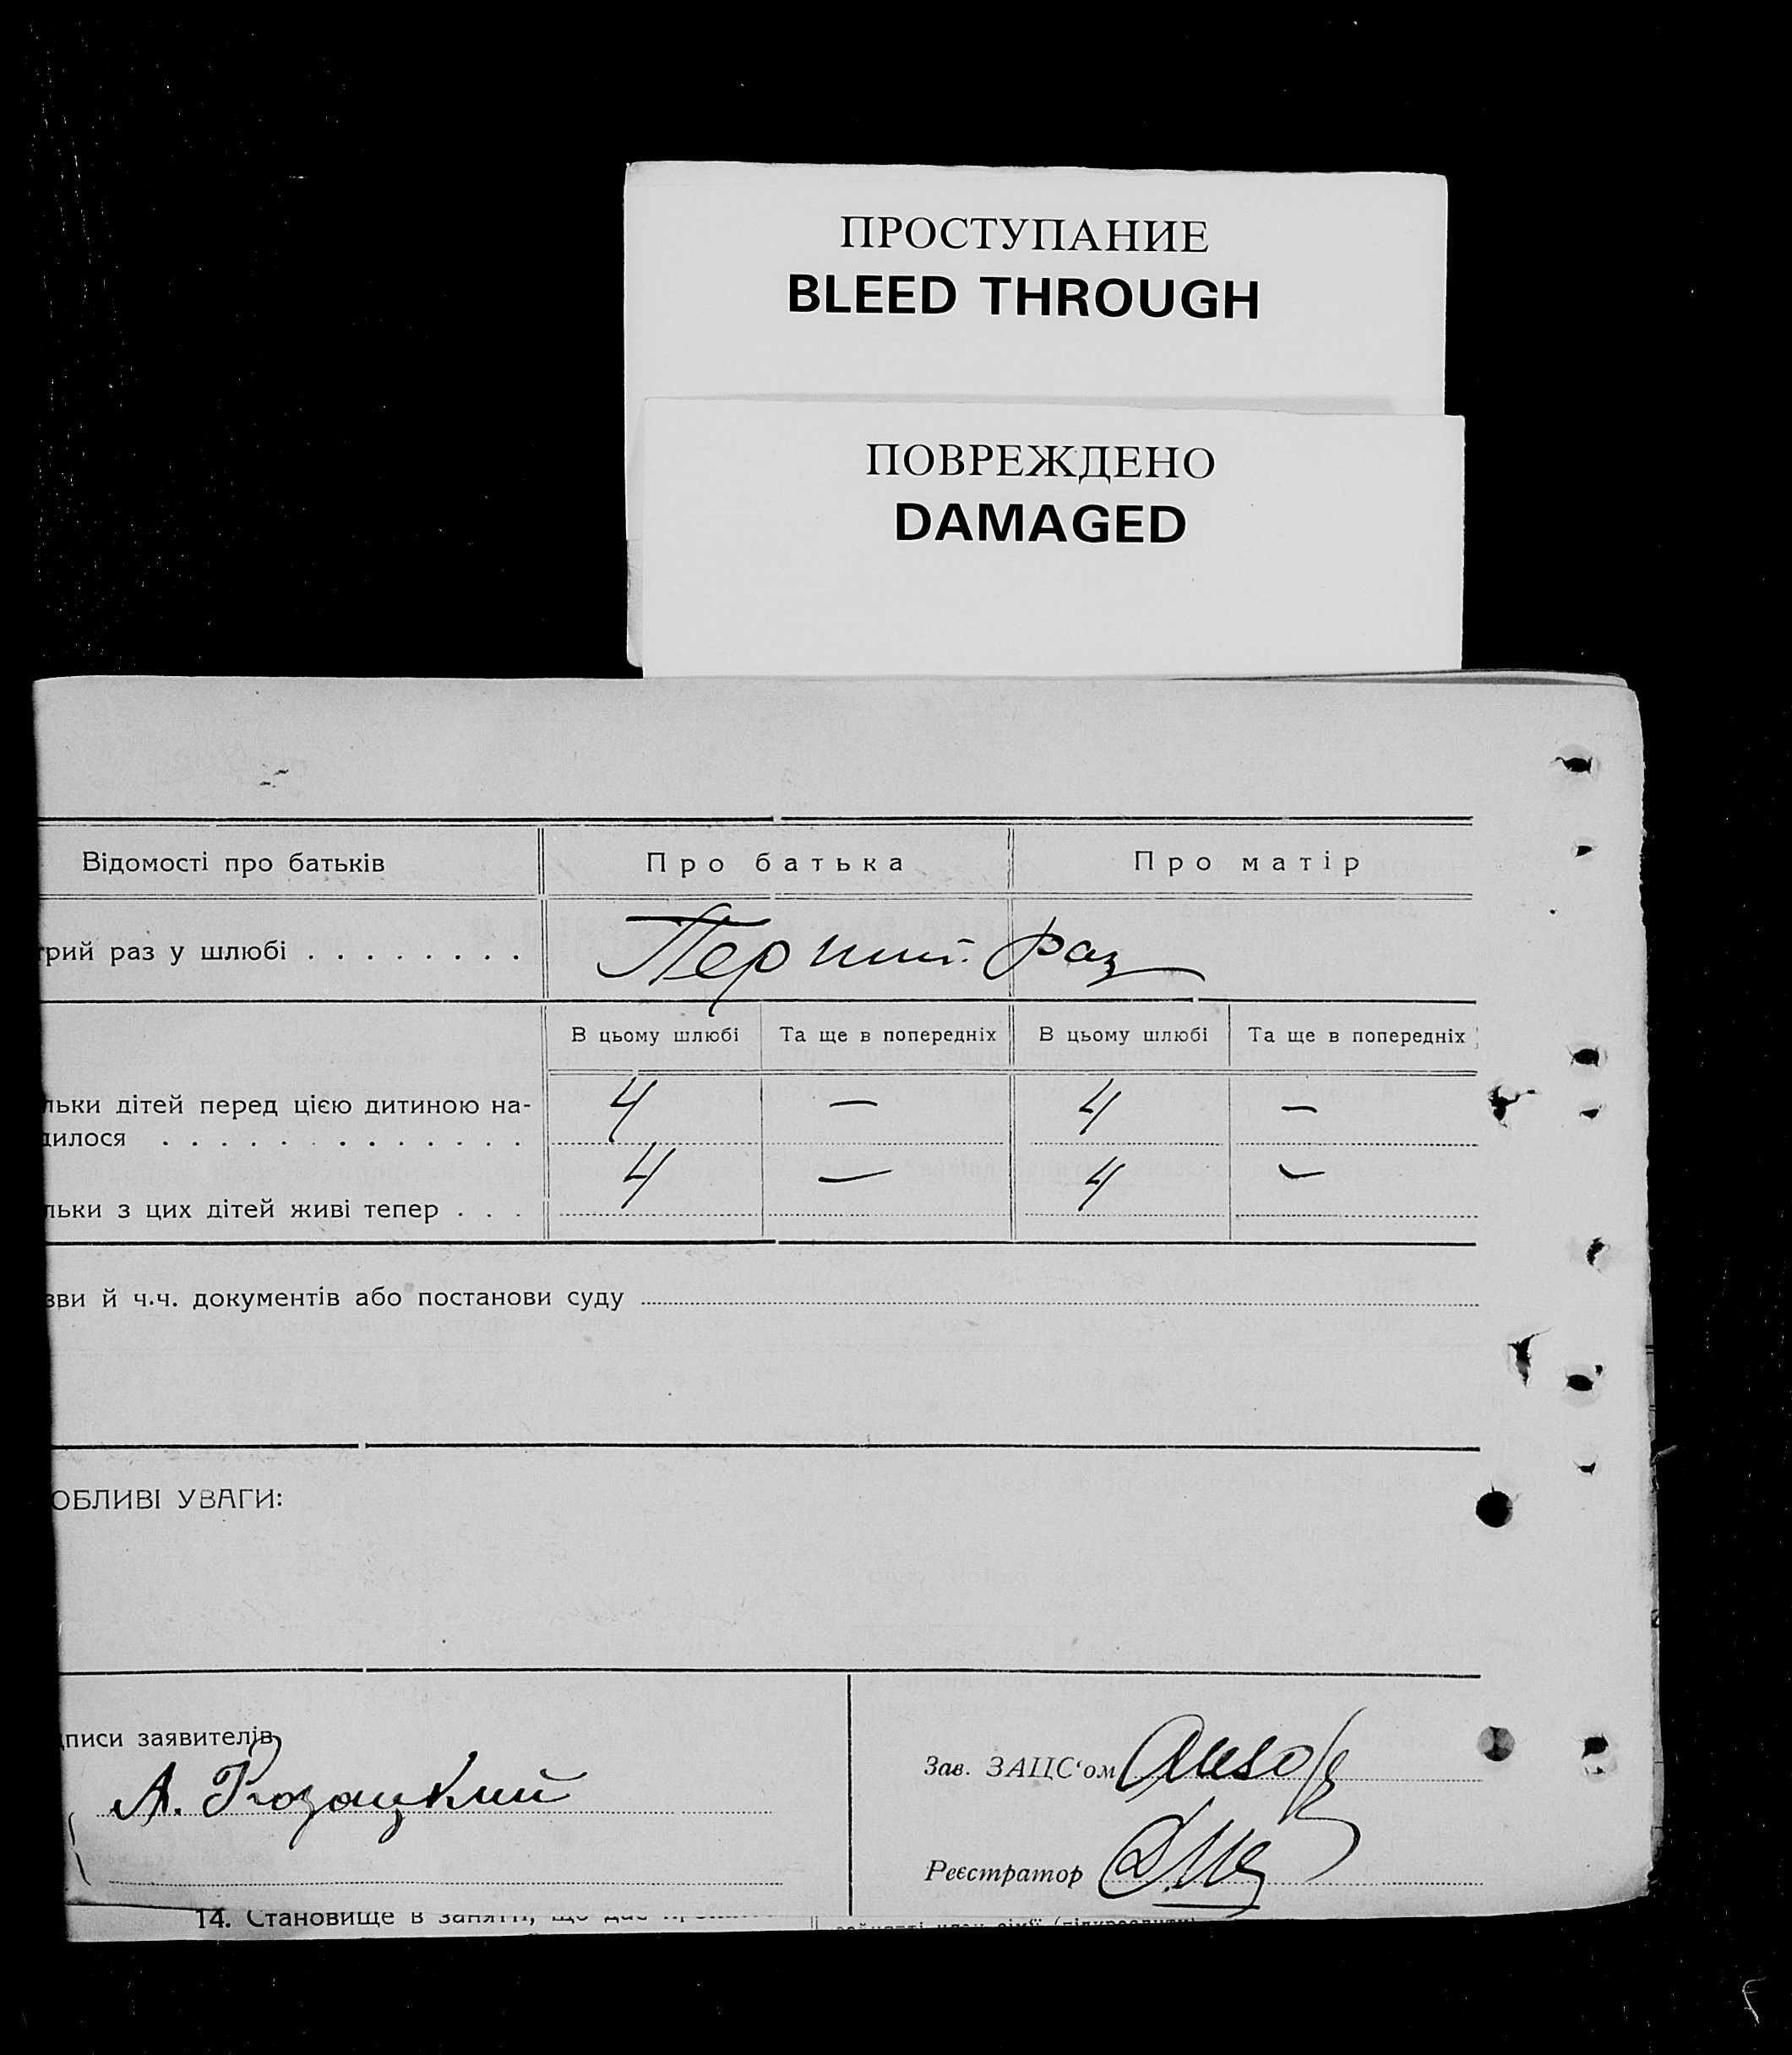 ПРОСТУПАНИЕ
BLEED THROUGH
ПОВРЕЖДЕНО
DAMAGED
Відомості про батьків Про батька Про матір
трий раз у шлюбі . . . . . . . . Перший раз
В цьому шлюбі Та ще в попередніх В цьому шлюбі Та ще в попередніх
льки дітей перед цією дитиною на- 4 — 4 —
дилося . . . . . . . . . . . . .
льки з цих дітей живі тепер . . . 4 — 4 —
зви й ч.ч. документів або постанови суду
ОБЛИВІ УВАГИ:
дписи заявителів
А. Козацкий
Зав. ЗАЦС'ом
Реєстратор
14. Становище в занятті, що дає